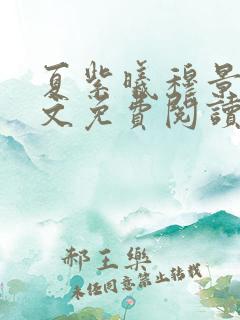 夏紫曦穆景
文免費閱讀
郝王樂
未經同意禁止轉載